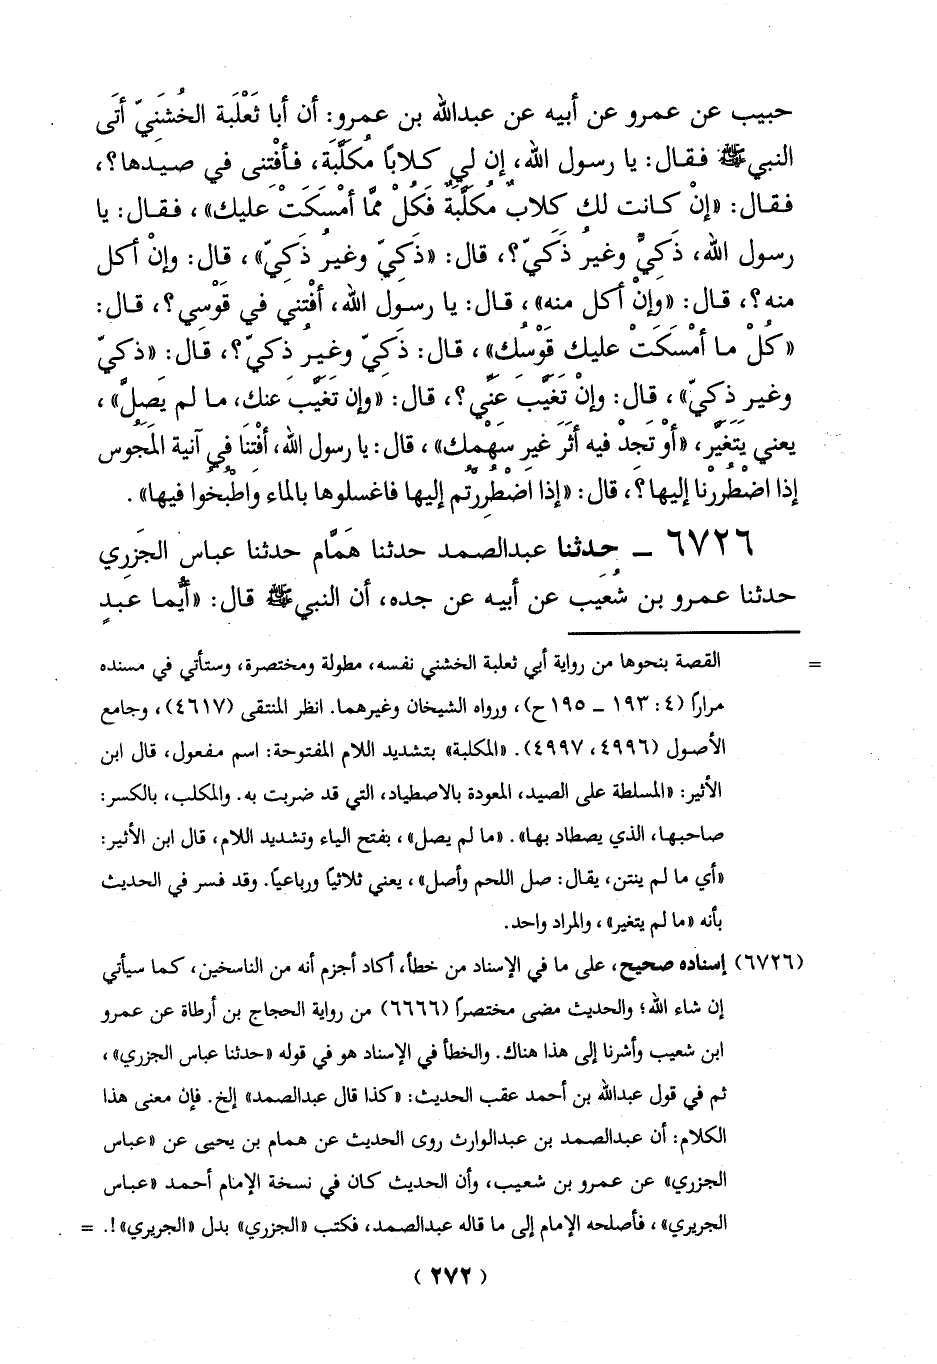 حبيب عن عمرو عن أبيه عن عبدالله بن عمرو: أن أبا ثَعْلَبة الخُشَنيّ أتَى
النبي ﷺ فقال: يا رسول الله، إن لي كلابًا مُكَلَّبَة، فأفْتني في صيدها؟،
فقال: «إنْ كانت لك كلابٌ مُكَلَّبَةٌ فَكُلْ ممَّا أمْسَكَتْ عليك»، فقال: يا
رسول الله، ذَكيٌّ وغيرُ ذَكيّ؟، قال: «ذَكيّ وغيرُ ذَكيّ»، قال: وإنْ أكل
منه؟، قال: «وإنْ أكل منه»، قال: يا رسول الله، أفْتني في قَوْسِي؟، قال:
«كُلْ ما أمْسَكَتْ عليك قَوْسُك»، قال: ذكيّ وغيرُ ذكيّ؟، قال: «ذكيّ
وغير ذَكيّ»، قال: وإنْ تَغَيَّبَ عَنِّي؟، قال: «وإن تَغَيَّبَ عنك، ما لم يَصلَّ»،
يعني يَتَغَيَّر، «أو تَجدْ فيه أثَرَ غير سَهْمك»، قال: يا رسول الله، أفْتنَا في آنية المَجُوس
إذا اضْطُررْنا إليها؟، قال: «إذا اضْطُررتم إليها فاغسلوها بالماء واطْبُخوا فيها».
٦٧٢٦ ـ حدثنا عبدالصمد حدثنا همَّام حدثنا عباس الجَزَري
حدثنا عمرو بن شُعيب عن أبيه عن جده، أن النبي ﷺ قال: «أيُّما عبدٍ
= القصة بنحوها من رواية أبي ثعلبة الخشني نفسه، مطولة ومختصرة، وستأتي في مسنده
مرارًا (٤: ١٩٣ ـ ١٩٥ ح)، ورواه الشيخان وغيرهما. انظر المنتقى (٤٦١٧)، وجامع
الأصول (٤٩٩٦، ٤٩٩٧). «المكلبة» بتشديد اللام المفتوحة: اسم مفعول، قال ابن
الأثير: «المسلطة على الصيد، المعودة بالاصطياد، التي قد ضربت به. والمكلب، بالكسر:
صاحبها، الذي يصطاد بها». «ما لم يصل»، بفتح الياء وتشديد اللام، قال ابن الأثير:
«أي ما لم ينتن، يقال: صل اللحم وأصل»، يعني ثلاثيًا ورباعيًا. وقد فسر في الحديث
بأنه «ما لم يتغير»، والمراد واحد.
(٦٧٢٦) إسناده صحيح، على ما في الإسناد من خطأ، أكاد أجزم أنه من الناسخين، كما سيأتي
إن شاء الله؛ والحديث مضى مختصرًا (٦٦٦٦) من رواية الحجاج بن أرطاة عن عمرو
ابن شعيب وأشرنا إلى هذا هناك. والخطأ في الإسناد هو في قوله «حدثنا عباس الجزري»،
ثم في قول عبدالله بن أحمد عقب الحديث: «كذا قال عبدالصمد» إلخ. فإن معنى هذا
الكلام: أن عبدالصمد بن عبدالوارث روى الحديث عن همام بن يحيى عن «عباس
الجزري» عن عمرو بن شعيب، وأن الحديث كان في نسخة الإمام أحمد «عباس
الجريري»، فأصلحه الإمام إلى ما قاله عبدالصمد، فكتب «الجزري» بدل «الجريري»!. =
(٢٧٢)